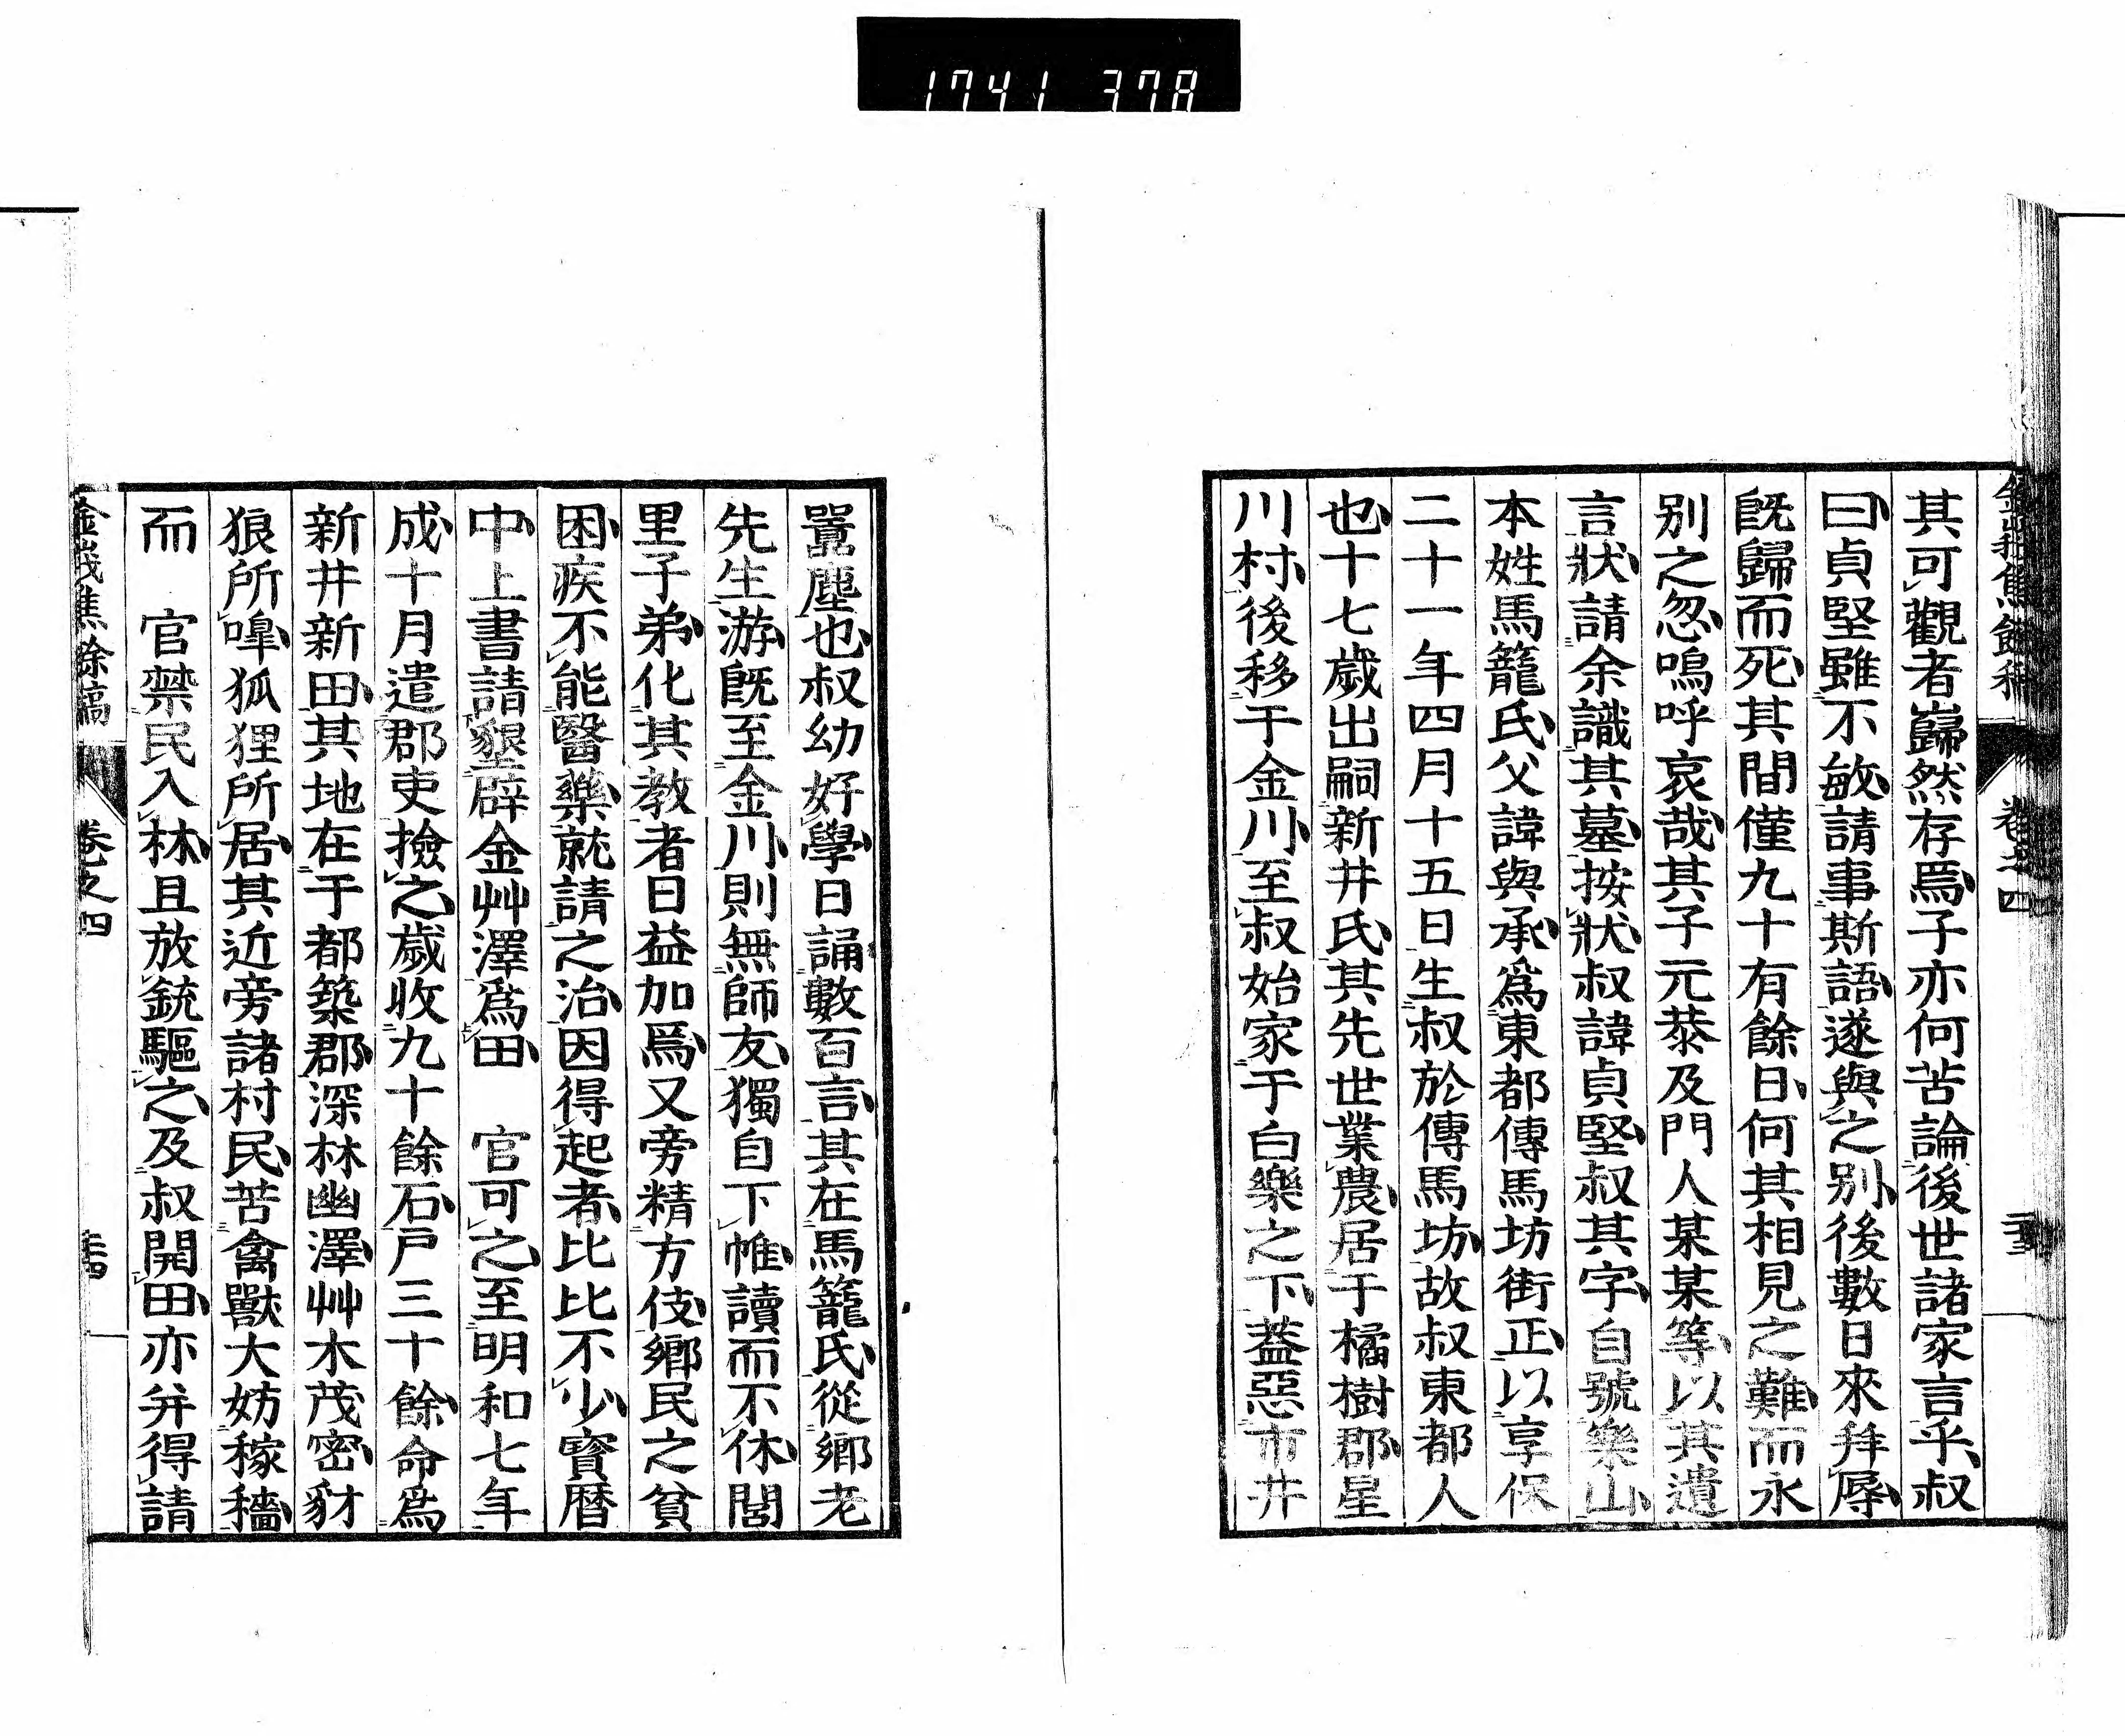 1741 378
金峩焦餘稿 卷之四
其可觀者巋然存焉子亦何苦論後世諸家言乎叔
曰貞堅雖不敏請事斯語遂與之別後數日來拜辱
既歸而死其間僅九十有餘日何其相見之難而永
別之忽嗚呼哀哉其子元恭及門人某某等以其遺
言狀請余識其墓按狀叔諱貞堅叔其字自號樂山
本姓馬籠氏父諱與承爲東都傳馬坊街正以享保
二十一年四月十五日生叔於傳馬坊故叔東都人
也十七歲出嗣新井氏其先世業農居于橘樹郡星
川村後移于金川至叔始家于白樂之下蓋惡市井
囂塵也叔幼好學日誦數百言其在馬籠氏從鄉老
先生游既至金川則無師友獨自下帷讀而不休閭
里子弟化其教者日益加焉又旁精方伎鄉民之貧
困疾不能醫藥就請之治因得起者比比不少寶曆
中上書請墾辟金艸澤爲田 官可之至明和七年
成十月遣郡吏撿之歲收九十餘石戶三十餘命爲
新井新田其地在于都築郡深林幽澤艸木茂密豺
狼所嘷狐狸所居其近旁諸村民苦禽獸大妨稼穡
而 官禁民入林且放銃驅之及叔開田亦并得請
金峩焦餘稿 卷之四